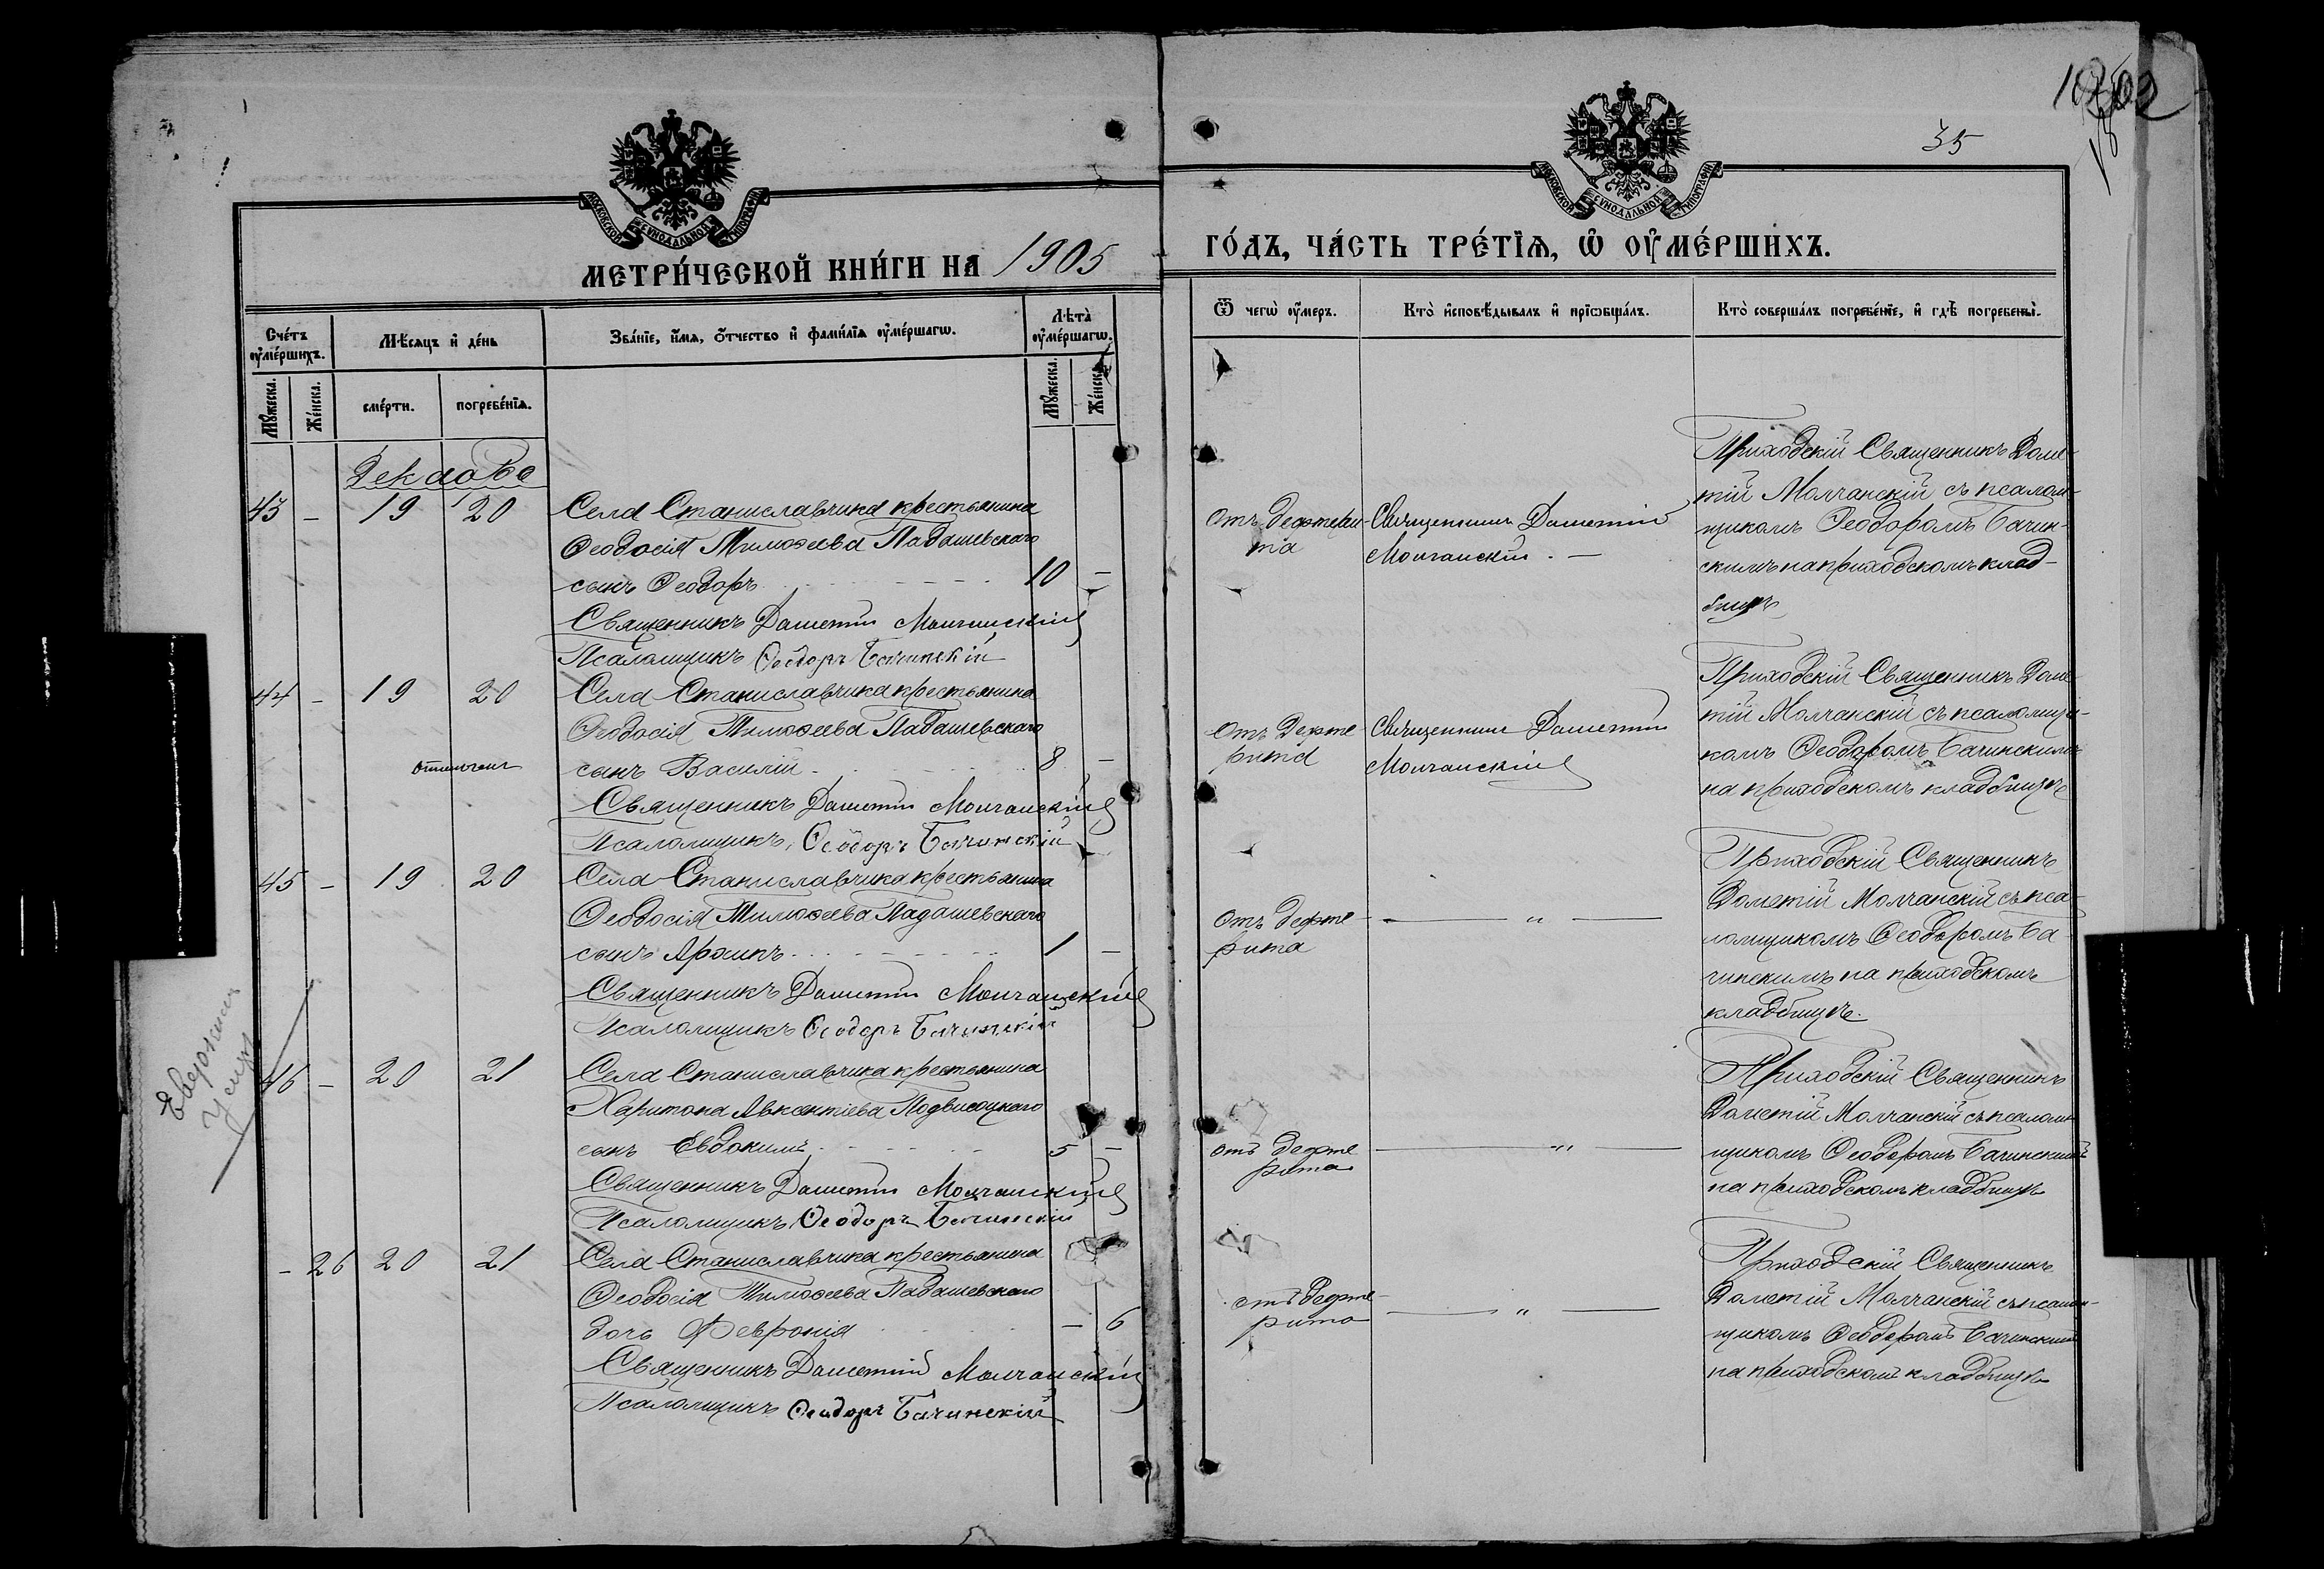 35
МОСКОВСКОЙ СѴНОДАЛЬНОЙ ТИПОГРАФІИ
МОСКОВСКОЙ СѴНОДАЛЬНОЙ ТИПОГРАФІИ
МЕТРИ́ЧЕСКОЙ КНИ́ГИ НА 1905
ГО́ДЪ, ЧА́СТЬ ТРЕ́ТІѦ, Ѡ҆ ОУ҆МЕ́РШИХЪ.
Сче́тъ оу҆ме́ршихъ.
Мѣ́сяцъ и҆ де́нь
Зва́нїе, и҆́мѧ, ѻ҆́тчество и҆ фами́лїѧ оу҆ме́ршагѡ.
Лѣ̑та̀ оу҆ме́ршагѡ.
Мꙋ́жеска.
Же́нска.
сме́рти.
погребе́нїѧ.
Мꙋ́жеска.
Же́нска.
Ѿ чегѡ̀ оу҆́меръ.
Кто̀ и҆сповѣ́дывалъ и҆ прїѡбща́лъ.
Кто̀ соверша́лъ погребе́нїе, и҆ гдѣ̀ погребены̀.
Декабрь
43 - 19 20 Села Станиславчика крестьянина
Ѳеодосія Тимоѳеева Падашевскаго
сынъ Ѳеодоръ 10 -
Священникъ Дометій Молчанскій
Псаломщикъ Ѳеодоръ Бачинскій
отъ дефтери-
та
Священникъ Дометій
Молчанскій. -
Приходскій Священникъ Доме-
тій Молчанскій съ псалом-
щикомъ Ѳеодоромъ Бачин-
скимъ на приходскомъ клад-
бищѣ
44 - 19 20 Села Станиславчика крестьянина
Ѳеодосія Тимоѳеева Падашевскаго
сынъ Василій 8 -
Священникъ Дометій Молчанскій
Псаломщикъ Ѳеодоръ Бачинскій
Отъ дефте-
рита
Священникъ Дометій
Молчанскій
Приходскій Священникъ Доме-
тій Молчанскій съ псаломщи-
комъ Ѳеодоромъ Бачинскимъ
на приходскомъ кладбищѣ
45 - 19 20 Села Станиславчика крестьянина
Ѳеодосія Тимоѳеева Падашевскаго
сынъ 1 -
Священникъ Дометій Молчанскій
Псаломщикъ Ѳеодоръ Бачинскій
Отъ дефте-
рита
— " —
Приходскій Священникъ
Дометій Молчанскій съ пса-
ломщикомъ Ѳеодоромъ Ба-
чинскимъ на приходскомъ
кладбищѣ.
46 - 20 21 Села Станиславчика крестьянина
Харитона Авксентіева Подвисоцкаго
сынъ Евдокимъ 5 -
Священникъ Дометій Молчанскій
Псаломщикъ Ѳеодоръ Бачинскій
отъ дефте
рита
— " —
Приходскій Священникъ
Дометій Молчанскій съ псалом-
щикомъ Ѳеодоромъ Бачинскимъ
на приходскомъ кладбищѣ
- 26 20 21 Села Станиславчика крестьянина
Ѳеодосія Тимоѳеева Падашевскаго
дочь Февронія - 6
Священникъ Дометій Молчанскій
Псаломщикъ Ѳеодоръ Бачинскій
отъ дефте-
рита
— " —
Приходскій Священникъ
Дометій Молчанскій съ псалом-
щикомъ Ѳеодоромъ Бачинскимъ
на приходскомъ кладбищѣ